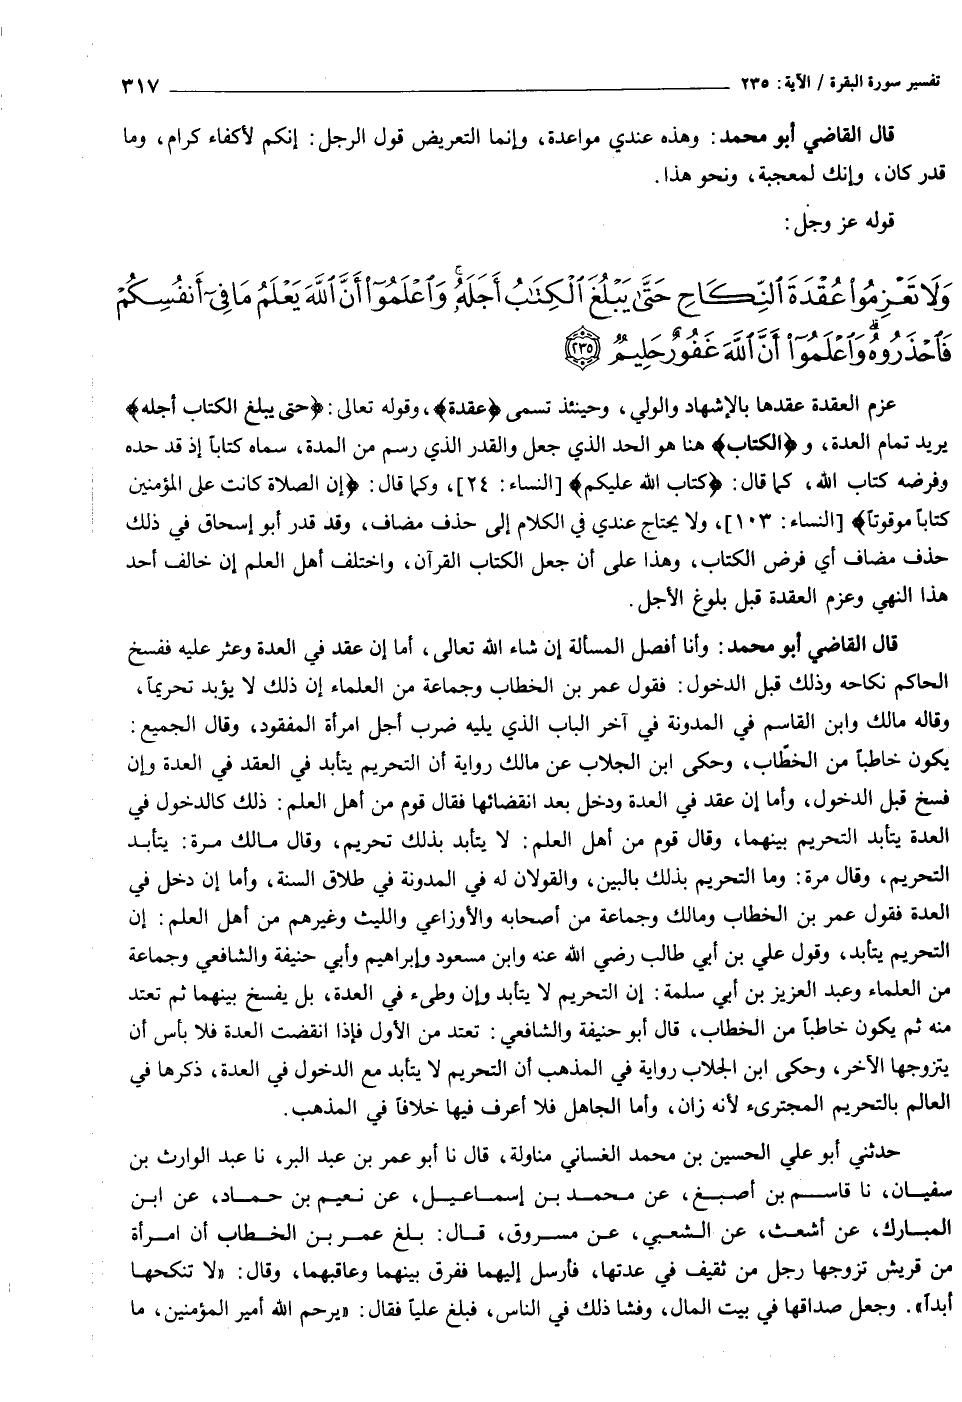 تفسير سورة البقرة / الآية: ٢٣٥ ٣١٧
قال القاضي أبو محمد: وهذه عندي مواعدة، وإنما التعريض قول الرجل: إنكم لأكفاء كرام، وما
قدر كان، وإنك لمعجبة، ونحو هذا.
قوله عز وجل:
وَلَا تَعْزِمُوا۟ عُقْدَةَ ٱلنِّكَاحِ حَتَّىٰ يَبْلُغَ ٱلْكِتَـٰبُ أَجَلَهُۥ ۚ وَٱعْلَمُوٓا۟ أَنَّ ٱللَّهَ يَعْلَمُ مَا فِىٓ أَنفُسِكُمْ
فَٱحْذَرُوهُ ۚ وَٱعْلَمُوٓا۟ أَنَّ ٱللَّهَ غَفُورٌ حَلِيمٌ ٢٣٥
عزم العقدة عقدها بالإشهاد والولي، وحينئذ تسمى ﴿عقدة﴾، وقوله تعالى: ﴿حتى يبلغ الكتاب أجله﴾
يريد تمام العدة، و ﴿الكتاب﴾ هنا هو الحد الذي جعل والقدر الذي رسم من المدة، سماه كتاباً إذ قد حده
وفرضه كتاب الله، كما قال: ﴿كتاب الله عليكم﴾ [النساء: ٢٤]، وكما قال: ﴿إن الصلاة كانت على المؤمنين
كتاباً موقوتاً﴾ [النساء: ١٠٣]، ولا يحتاج عندي في الكلام إلى حذف مضاف، وقد قدر أبو إسحاق في ذلك
حذف مضاف أي فرض الكتاب، وهذا على أن جعل الكتاب القرآن، واختلف أهل العلم إن خالف أحد
هذا النهي وعزم العقدة قبل بلوغ الأجل.
قال القاضي أبو محمد: وأنا أفصل المسألة إن شاء الله تعالى، أما إن عقد في العدة وعثر عليه ففسخ
الحاكم نكاحه وذلك قبل الدخول: فقول عمر بن الخطاب وجماعة من العلماء إن ذلك لا يؤبد تحريماً،
وقاله مالك وابن القاسم في المدونة في آخر الباب الذي يليه ضرب أجل امرأة المفقود، وقال الجميع:
يكون خاطباً من الخطّاب، وحكى ابن الجلاب عن مالك رواية أن التحريم يتأبد في العقد في العدة وإن
فسخ قبل الدخول، وأما إن عقد في العدة ودخل بعد انقضائها فقال قوم من أهل العلم: ذلك كالدخول في
العدة يتأبد التحريم بينهما، وقال قوم من أهل العلم: لا يتأبد بذلك تحريم، وقال مالك مرة: يتأبد
التحريم، وقال مرة: وما التحريم بذلك بالبين، والقولان له في المدونة في طلاق السنة، وأما إن دخل في
العدة فقول عمر بن الخطاب ومالك وجماعة من أصحابه والأوزاعي والليث وغيرهم من أهل العلم: إن
التحريم يتأبد، وقول علي بن أبي طالب رضي الله عنه وابن مسعود وإبراهيم وأبي حنيفة والشافعي وجماعة
من العلماء وعبد العزيز بن أبي سلمة: إن التحريم لا يتأبد وإن وطىء في العدة، بل يفسخ بينهما ثم تعتد
منه ثم يكون خاطباً من الخطاب، قال أبو حنيفة والشافعي: تعتد من الأول فإذا انقضت العدة فلا بأس أن
يتزوجها الآخر، وحكى ابن الجلاب رواية في المذهب أن التحريم لا يتأبد مع الدخول في العدة، ذكرها في
العالم بالتحريم المجترىء لأنه زان، وأما الجاهل فلا أعرف فيها خلافاً في المذهب.
حدثني أبو علي الحسين بن محمد الغساني مناولة، قال نا أبو عمر بن عبد البر، نا عبد الوارث بن
سفيان، نا قاسم بن أصبغ، عن محمد بن إسماعيل، عن نعيم بن حماد، عن ابن
المبارك، عن أشعث، عن الشعبي، عن مسروق، قال: بلغ عمر بن الخطاب أن امرأة
من قريش تزوجها رجل من ثقيف في عدتها، فأرسل إليهما ففرق بينهما وعاقبهما، وقال: «لا تنكحها
أبداً». وجعل صداقها في بيت المال، وفشا ذلك في الناس، فبلغ علياً فقال: «يرحم الله أمير المؤمنين، ما